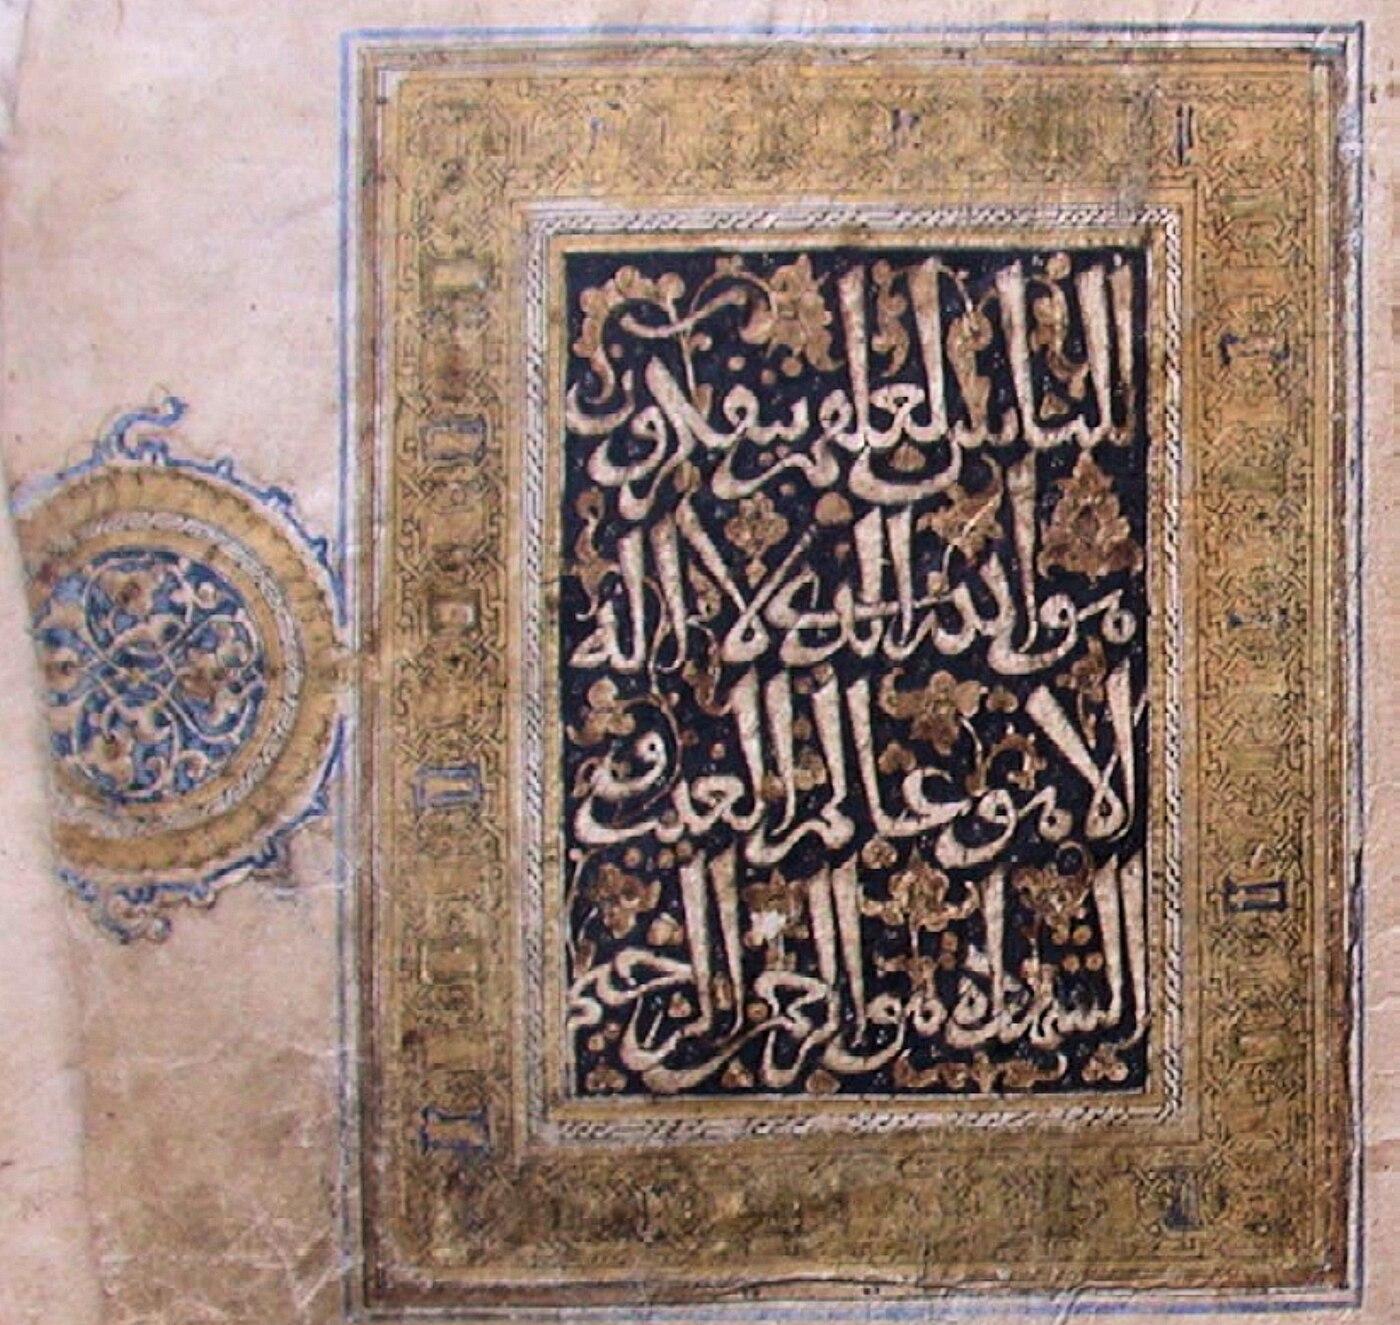 للناس لعلهم يتفكرون
هو الله الذي لا اله
الا هو عالم الغيب و
الشهادة هو الرحمن الرحيم